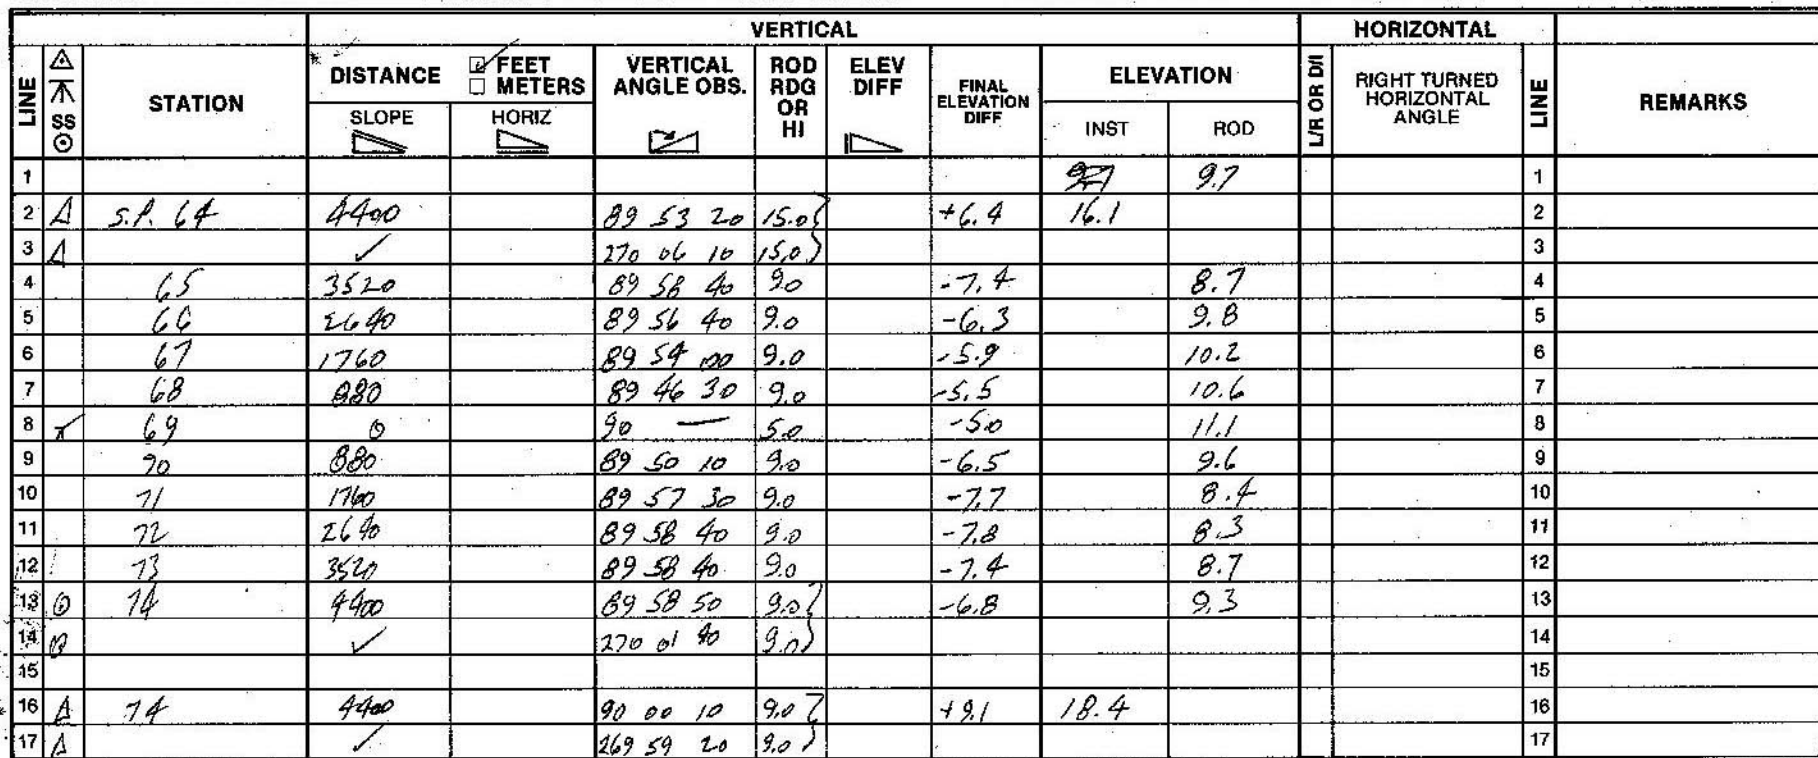 VERTICAL HORIZONTAL
LINE SS STATION DISTANCE ☑ FEET ☐ METERS SLOPE HORIZ VERTICAL ANGLE OBS. ROD RDG OR HI ELEV DIFF FINAL ELEVATION DIFF ELEVATION INST ROD L/R OR D/I RIGHT TURNED HORIZONTAL ANGLE LINE REMARKS
1 9.7 9.7 1
2 Δ S.P. 64 4400 89 53 20 15.0 +6.4 16.1 2
3 Δ ✓ 270 06 10 15.0 3
4 65 3520 89 58 40 9.0 -7.4 8.7 4
5 66 2640 89 56 40 9.0 -6.3 9.8 5
6 67 1760 89 54 00 9.0 -5.9 10.2 6
7 68 880 89 46 30 9.0 -5.5 10.6 7
8 69 0 90 — 5.0 -5.0 11.1 8
9 70 880 89 50 10 9.0 -6.5 9.6 9
10 71 1760 89 57 30 9.0 -7.7 8.4 10
11 72 2640 89 58 40 9.0 -7.8 8.3 11
12 73 3520 89 58 40 9.0 -7.4 8.7 12
13 ⊙ 74 4400 89 58 50 9.0 -6.8 9.3 13
14 ⊙ ✓ 270 01 40 9.0 14
15 15
16 Δ 74 4400 90 00 10 9.0 +9.1 18.4 16
17 Δ ✓ 269 59 20 9.0 17